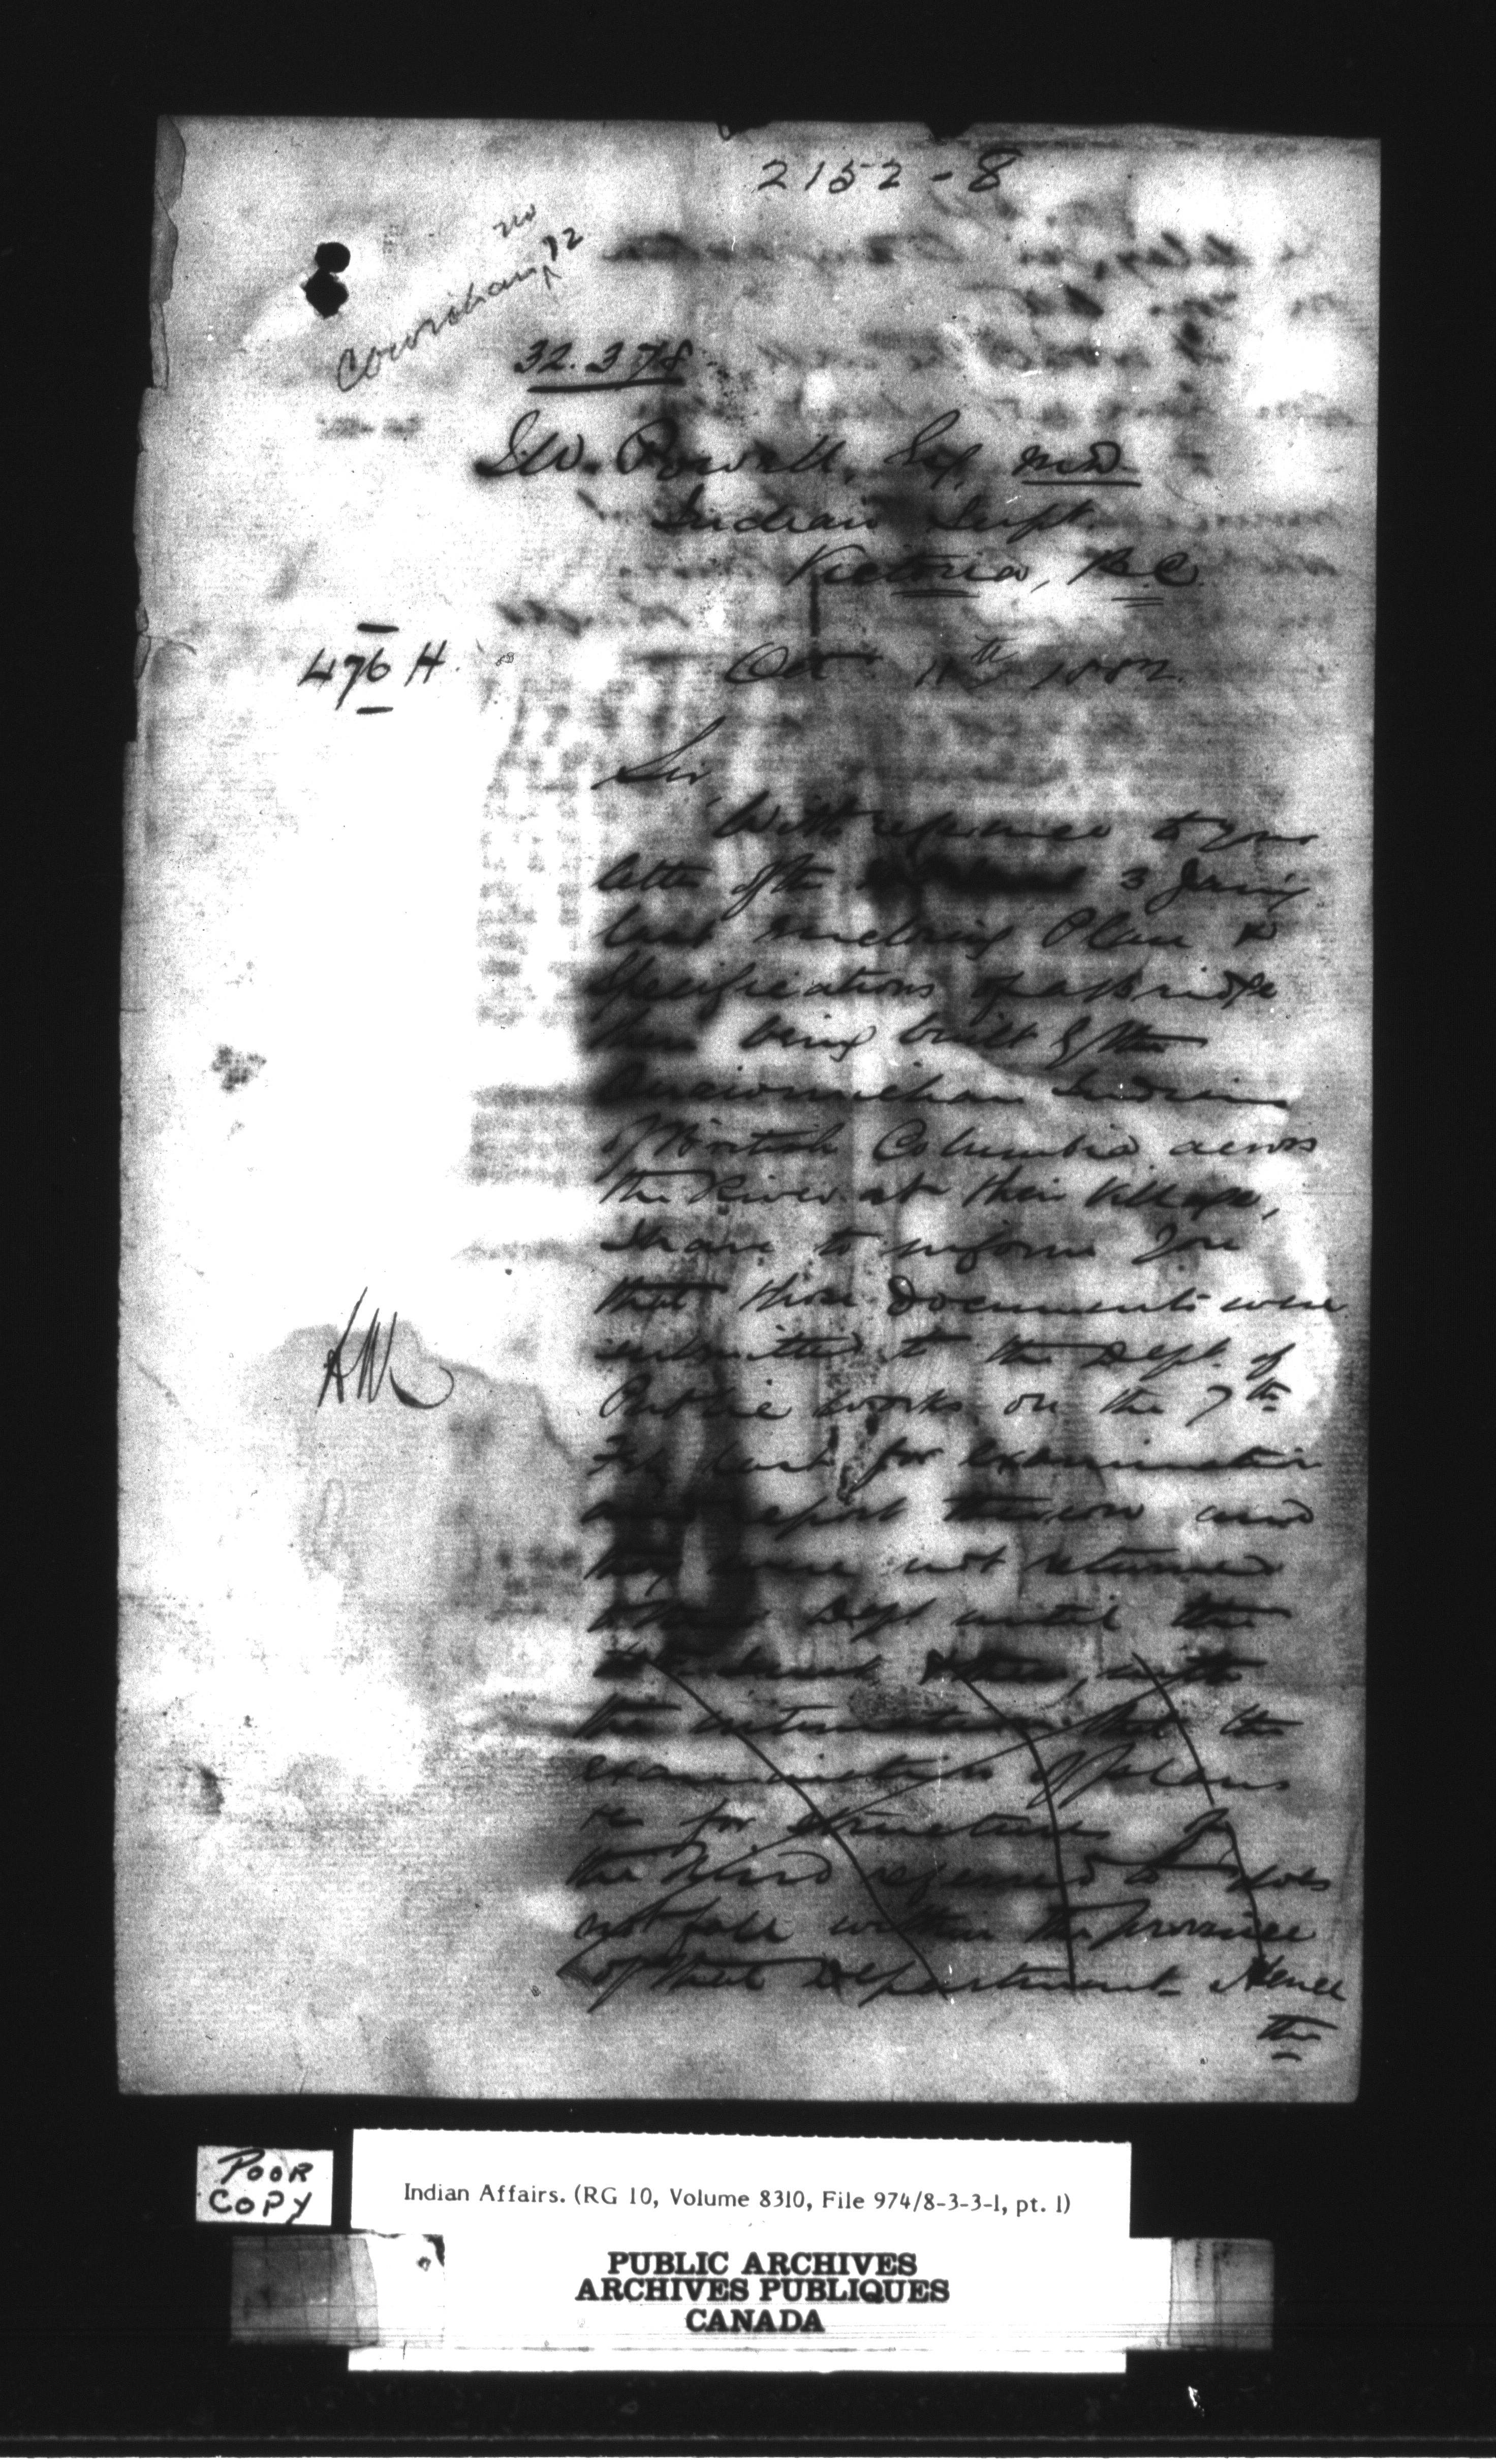 2152-8
no
Cowichan 12
32.378
I.W. Powell, Esq, M.D
Indian Supt.
Victoria, B.C.
476 H.
Oct 11th 1882.
Sir,
With reference to your
letter of the 3
last enclosing Plan &
Specifications of a Bridge
then being built by the
Indians
of British Columbia across
the River at their Village,
I have to inform you
that these documents were
submitted to the Dept. of
Public Works on the 7th
last for examination
and report thereon and
they were not returned
to this Dept until the
with
the intimation that the
examination of plans
&c for structures of
the kind referred to does
not fall within the province
of that Department. Hence
the
AM
POOR
COPY
Indian Affairs. (RG 10, Volume 8310, File 974/8-3-3-1, pt. 1)
PUBLIC ARCHIVES
ARCHIVES PUBLIQUES
CANADA